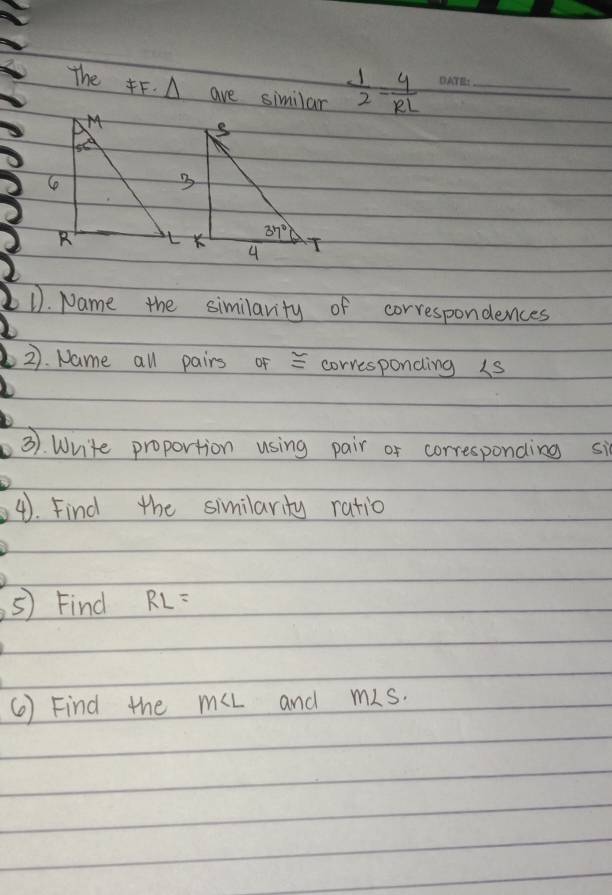 The ≠F. Δ are similar 1/2 = 4/RL DATE:
M S
6 3
37°
R L K T
4
1). Name the similarity of correspondences
2). Name all pairs of ≅ corresponding <s
3). Write proportion using pair of corresponding
4). Find the similarity ratio
5) Find RL=
6) Find the m<L and m<S.